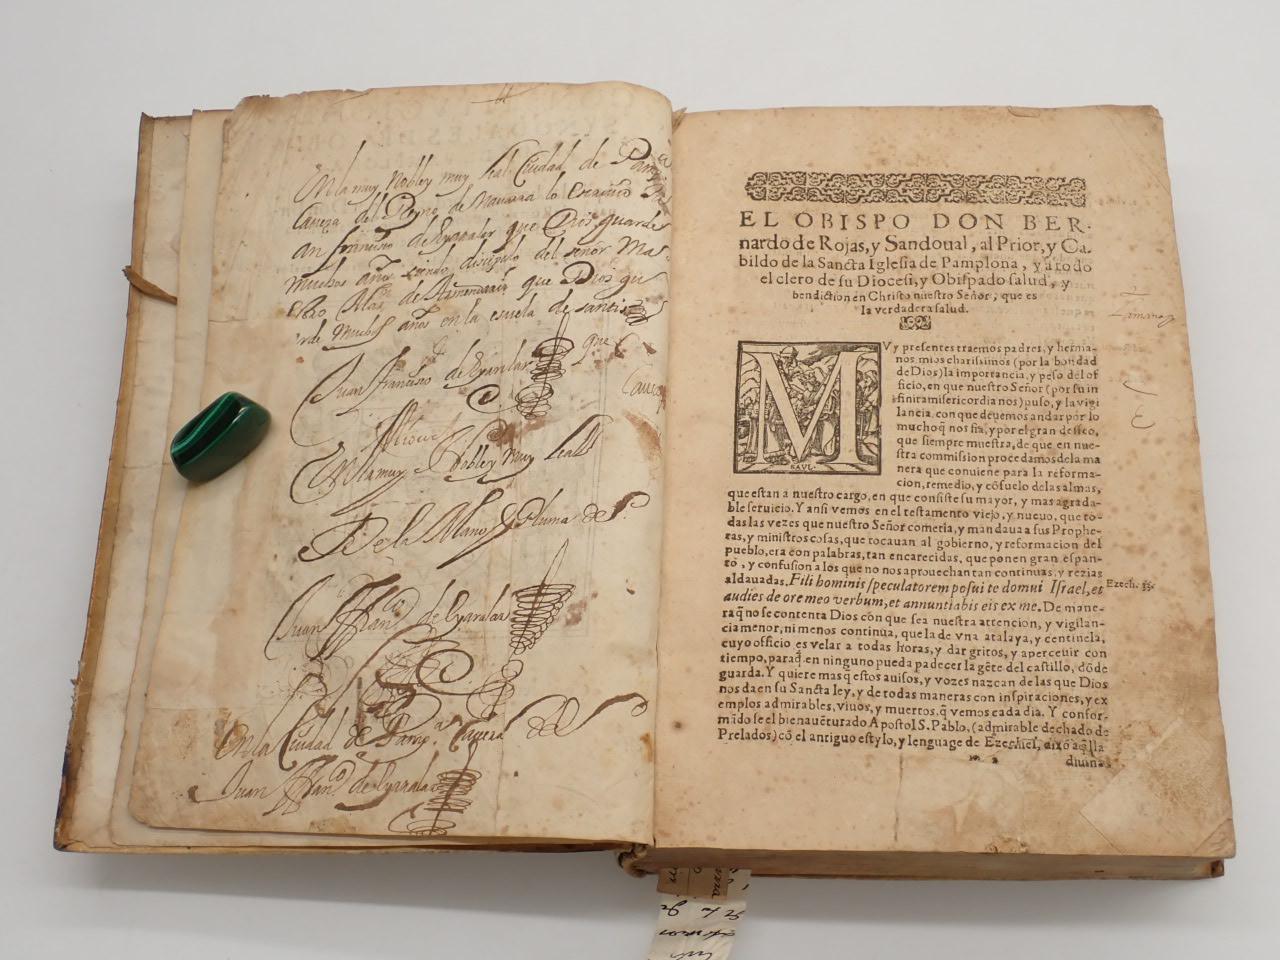 En la muy Noble y muy Leal Ciudad de Pam
Caveza del Reyno de Navarra lo
an francisco de que Dios guarde
muchos años siendo discipulo del señor Mas
de que Dios gu
arde muchos años en la escuela de santi
que
Juan francisco de
En la muy Noble y Muy Leal
De la Mano y Pluma de
Juan de
En la Ciudad de Pamp.ª Caveza del
Juan de
EL OBISPO DON BER-
nardo de Rojas, y Sandoual, al Prior, y Ca-
bildo de la Sancta Iglesia de Pamplona, y a todo
el clero de su Diocesi, y Obispado salud, y
bendiction en Christo nuestro Señor, que es
la verdadera salud.
MVy presentes traemos padres, y herma-
nos mios charissimos (por la bondad
de Dios) la importancia, y peso del of
ficio, en que nuestro Señor (por su in
finita misericordia nos) puso, y la vigi
lancia con que deuemos andar por lo
mucho q̃ nos fia, y por el gran desseo,
que siempre muestra, de que en nue-
stra commission procedamos de la ma
nera que conuiene para la reforma-
cion, remedio, y cōsuelo de las almas,
SAVL.
que estan a nuestro cargo, en que consiste su mayor, y mas agrada-
ble seruicio. Y ansi vemos en el testamento viejo, y nueuo, que to-
das las vezes que nuestro Señor cometia, y mandaua a sus Prophe-
tas, y ministros cosas, que tocauan al gobierno, y reformacion del
pueblo, era con palabras, tan encarecidas, que ponen gran espan-
to, y confusion a los que no nos aprouechan tan continuas, y rezias
aldauadas. Fili hominis speculatorem posui te domui Israel, et
audies de ore meo verbum, et annuntiabis eis ex me. De mane-
Ezech. 33.
ra q̃ no se contenta Dios con que sea nuestra attencion, y vigilan-
cia menor, ni menos continua, que la de vna atalaya, y centinela,
cuyo officio es velar a todas horas, y dar gritos, y apercevir con
tiempo, para q̃ en ninguno pueda padecer la gēte del castillo, dōde
guarda. Y quiere mas q̃ estos auisos, y vozes nazcan de las que Dios
nos da en su Sancta ley, y de todas maneras con inspiraciones, y ex
emplos admirables, viuos, y muertos, q̃ vemos cada dia. Y confor-
mādo se el bienauēturado Apostol S. Pablo, (admirable dechado de
Prelados) cō el antiguo estylo, y lenguage de Ezechiel, dixo aq̃lla
diuina